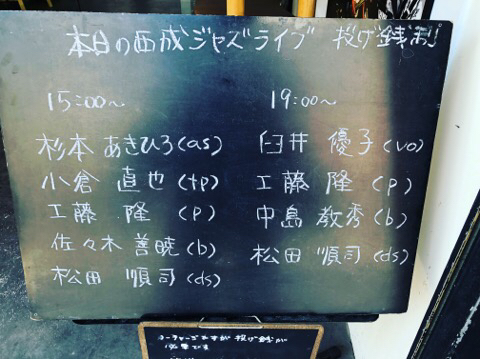 本日の西成ジャズライブ 投げ銭制
15:00～
杉本 あきひろ(as)
小倉 直也(tp)
工藤 隆 (p)
佐々木 善暁(b)
松田 順司(ds)
19:00～
臼井 優子(vo)
工藤 隆(p)
中島 教秀(b)
松田 順司(ds)
ノーチャージですが 投げ銭が
必要です